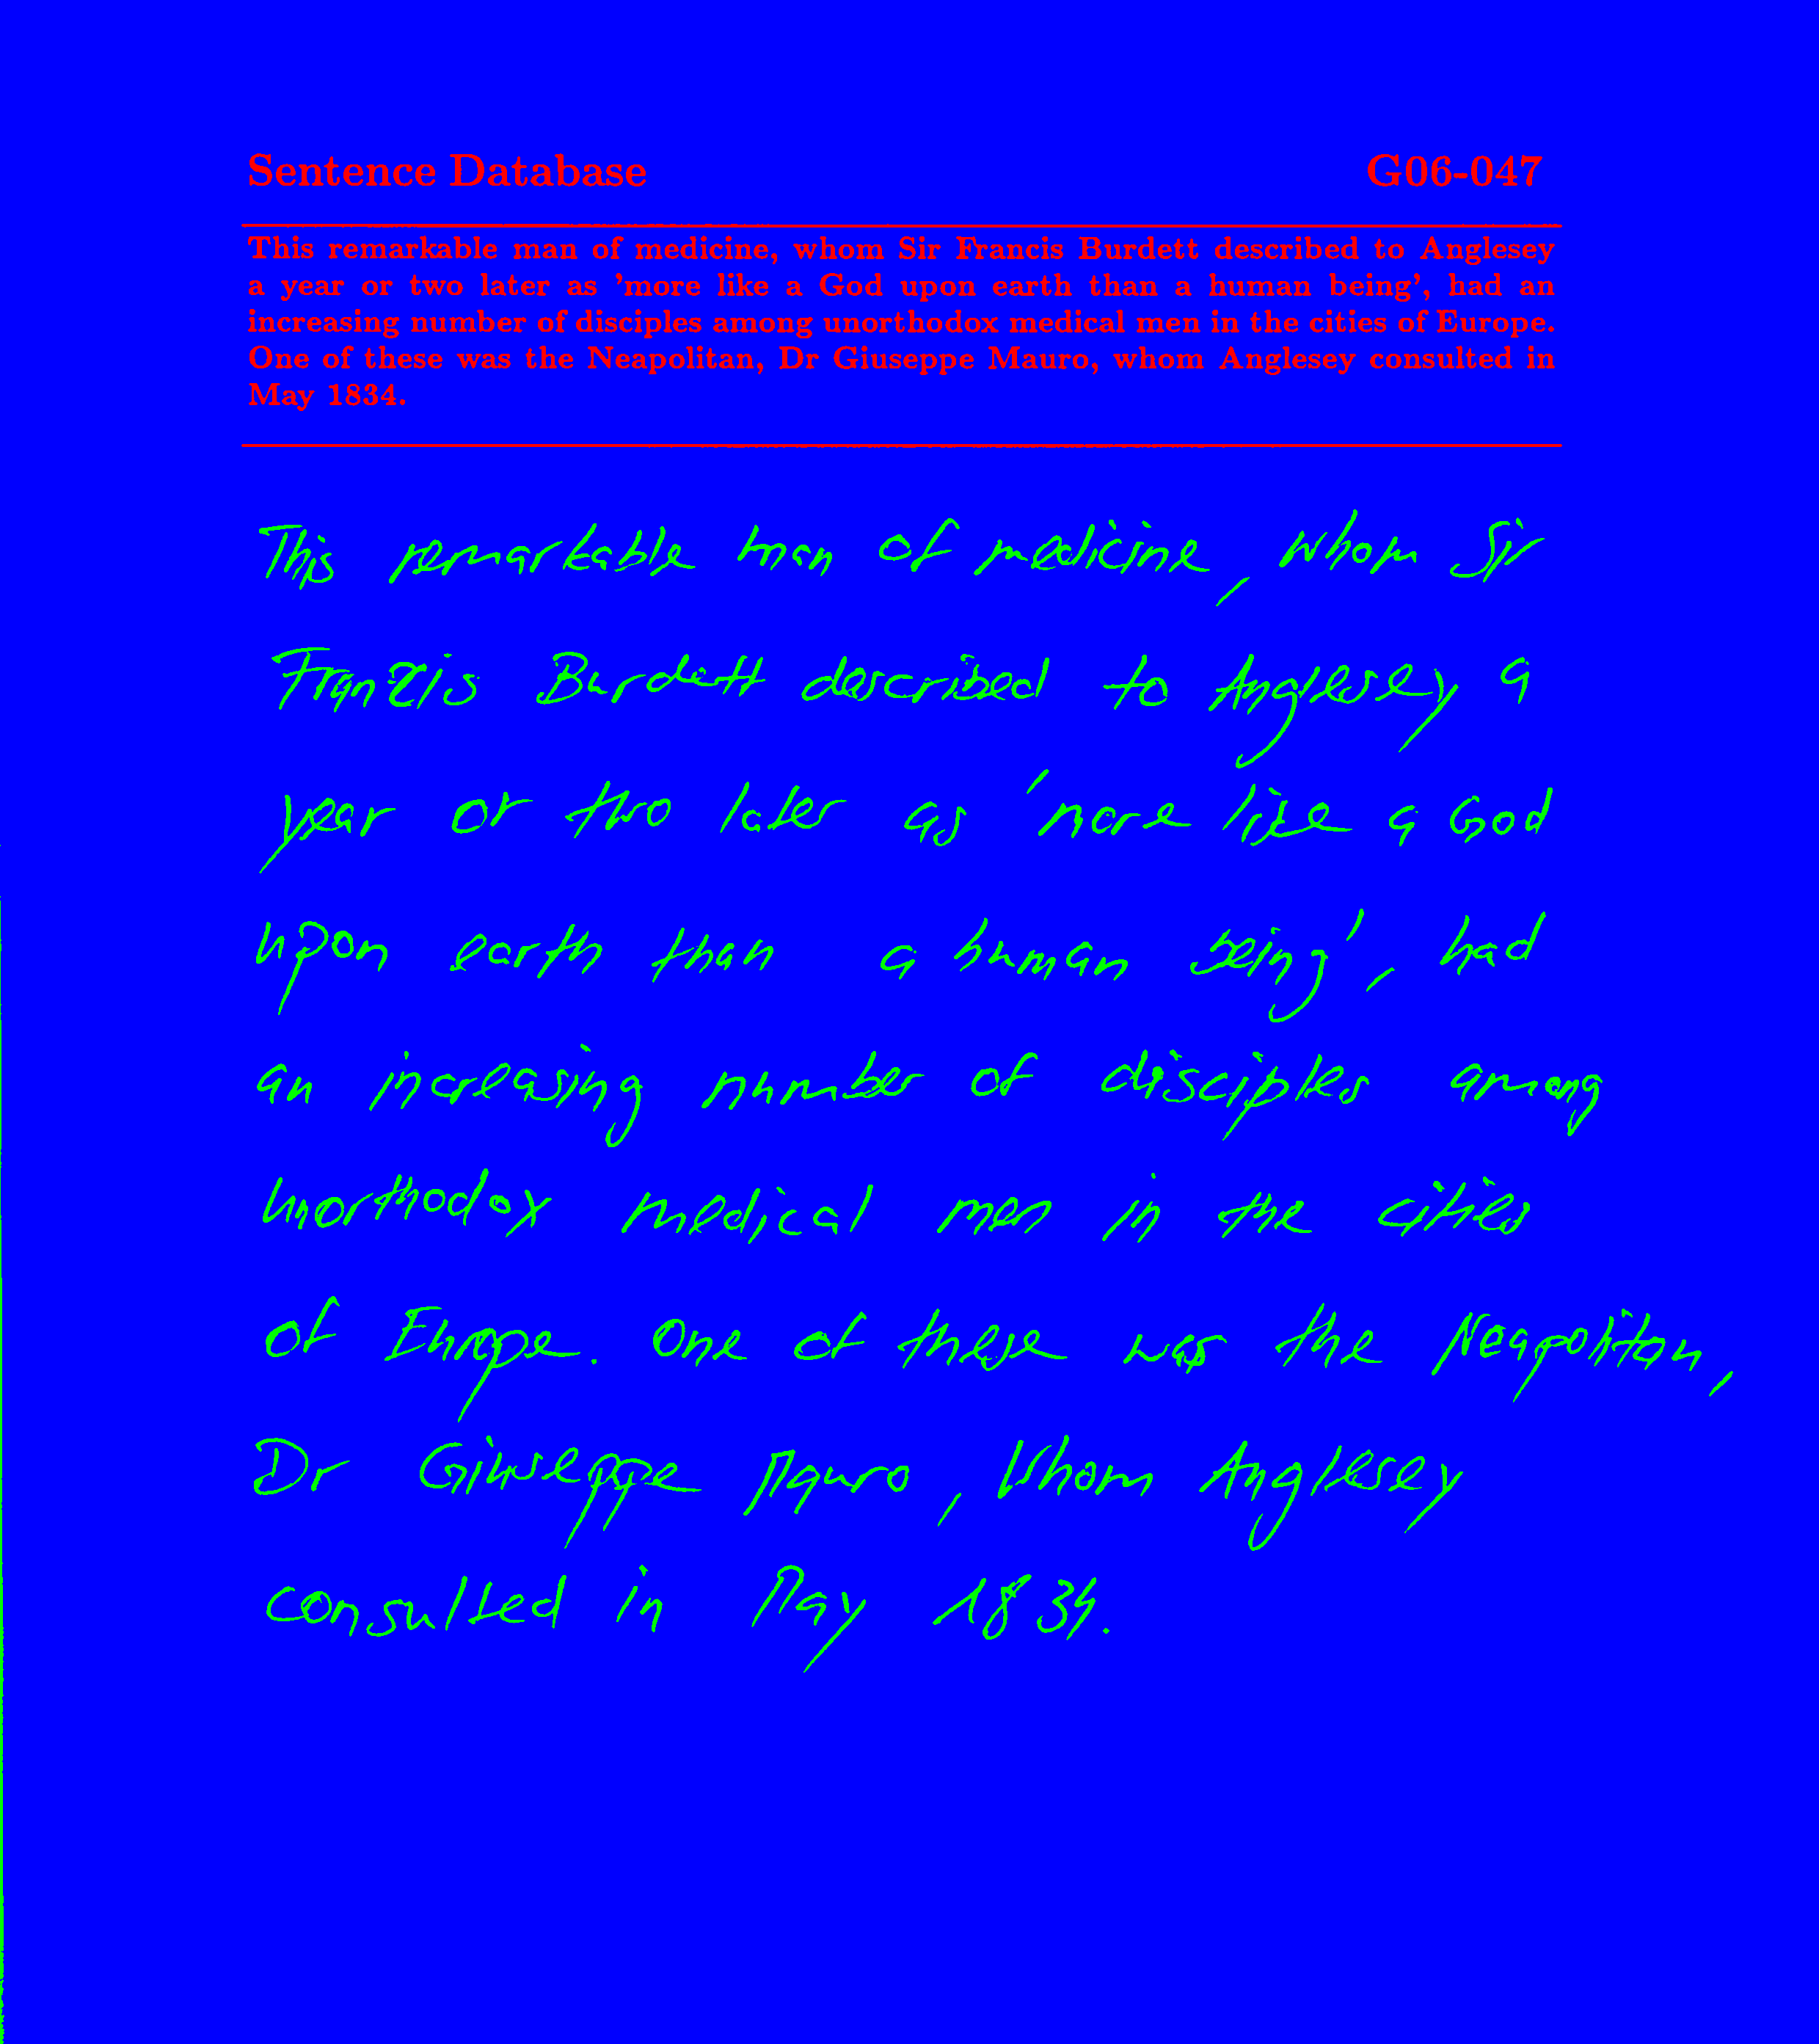 Sentence Database G06-047
This remarkable man of medicine, whom Sir Francis Burdett described to Anglesey
a year or two later as 'more like a God upon earth than a human being', had an
increasing number of disciples among unorthodox medical men in the cities of Europe.
One of these was the Neapolitan, Dr Giuseppe Mauro, whom Anglesey consulted in
May 1834.
This remarkable man of medicine, whom Sir
Francis Burdett described to Anglesey a
year or two later as 'more like a God
upon earth than a human being', had
an increasing number of disciples among
unorthodox medical men in the cities
of Europe. One of these was the Neapolitan,
Dr Giuseppe Mauro, whom Anglesey
consulted in May 1834.